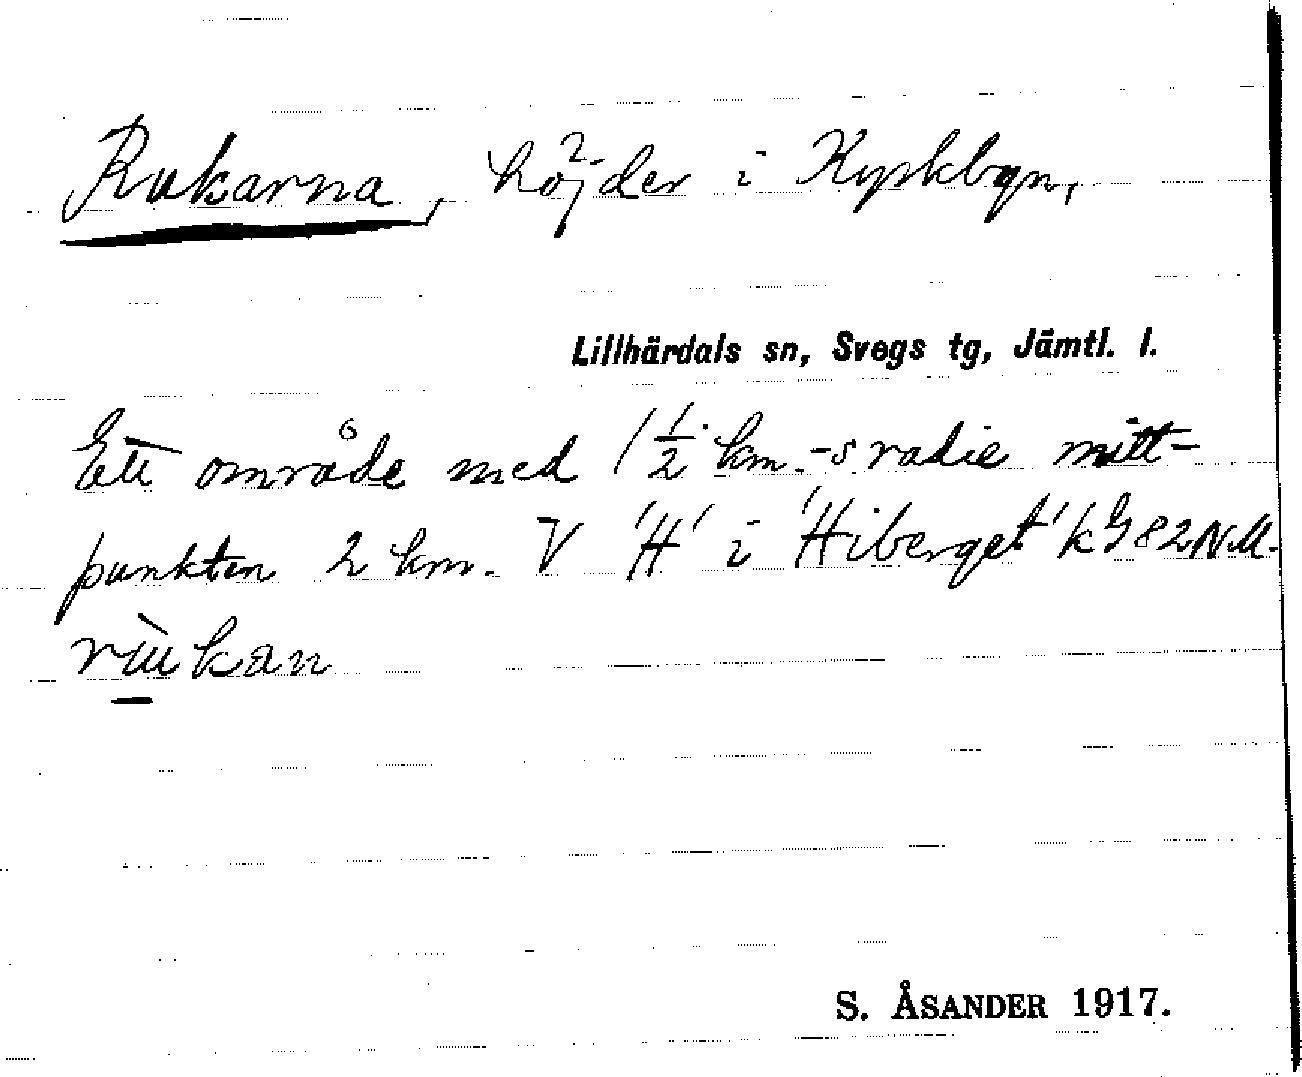 Rukarna, höjder i Kyrkbyn,
Lillhärdals sn, Svegs tg, Jämtl. l.
Ett område med 1 1/2 km.-s radie mitt-
punkten 2 km. V 'H' i 'Hiberget' k G 82 N.M.
S. ÅSANDER 1917.